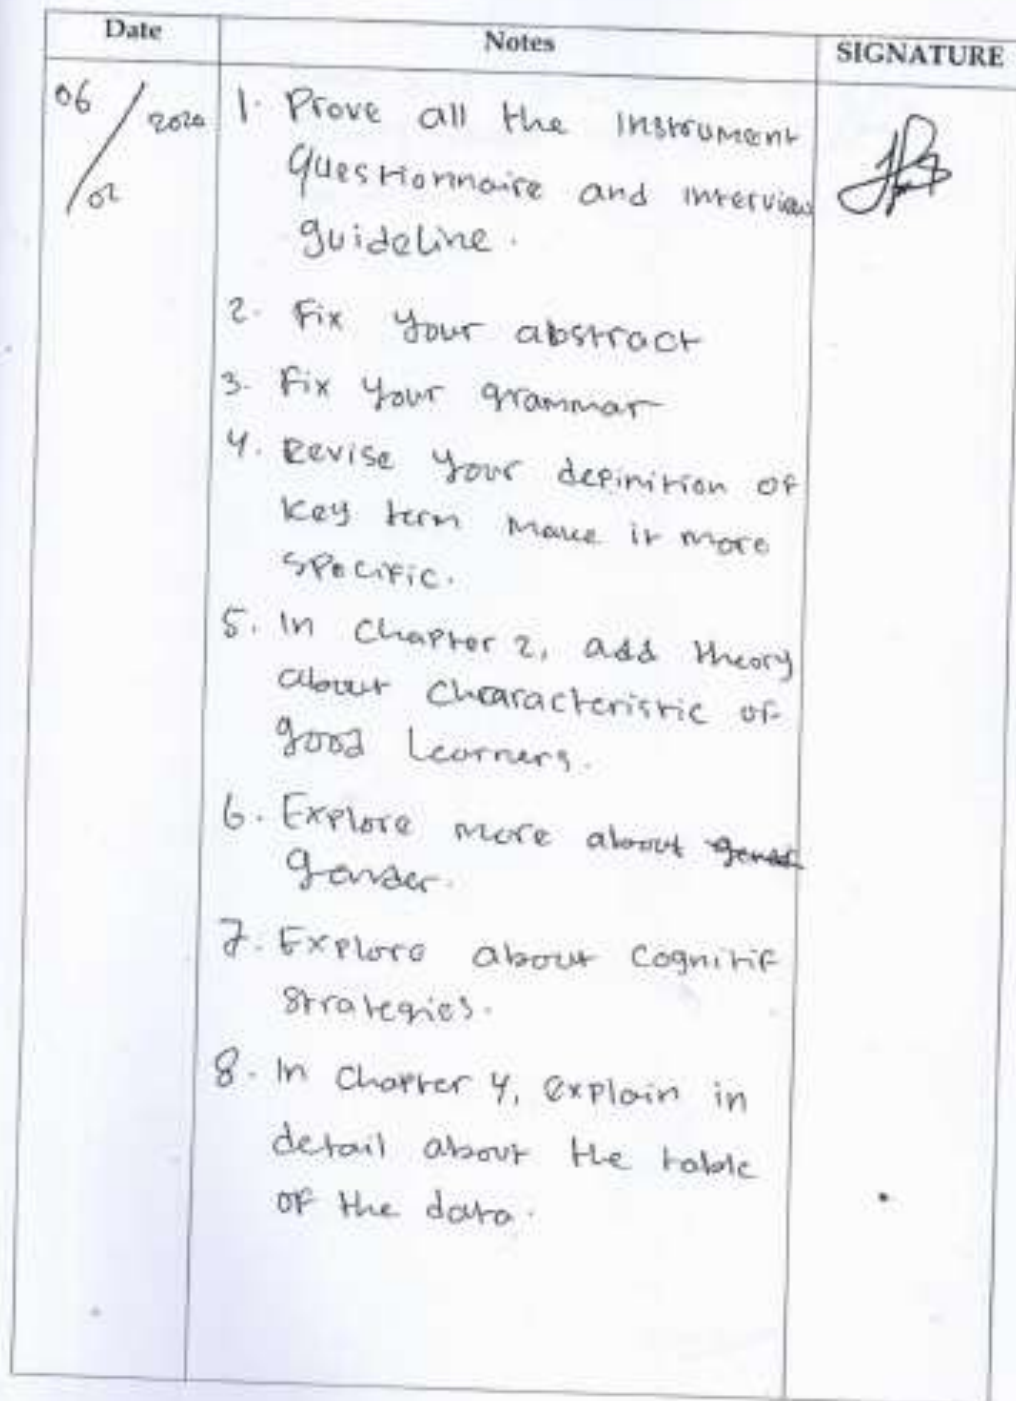 Date Notes SIGNATURE
06/02 2020
1. Prove all the instrument
Questionnaire and interview
guideline.
2. Fix your abstract
3. Fix your grammar
4. Revise your definition of
key term make it more
specific.
5. In Chapter 2, add theory
about characteristic of
good learners.
6. Explore more about
gender.
7. Explore about Cognitif
Strategies.
8. In Chapter 4, explain in
detail about the table
of the data.